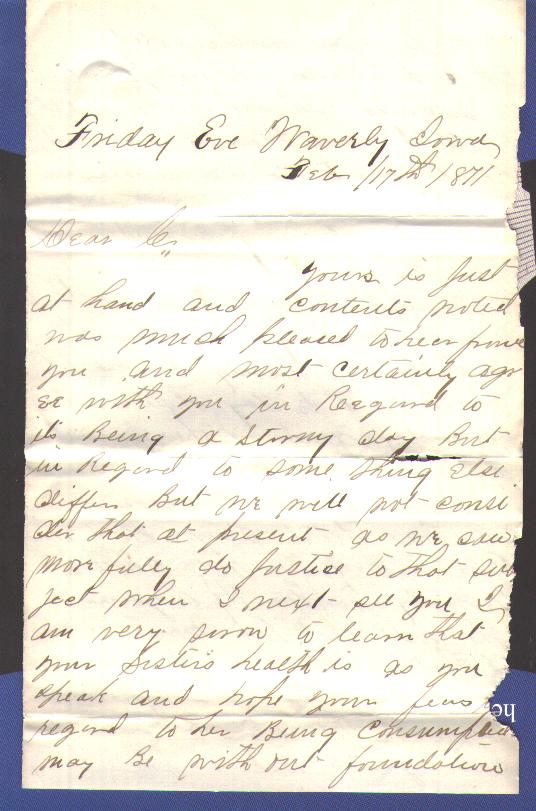 Friday Eve Waverly Iowa
Feb /17th /871
Dear C"
yours is just
at hand and contents noted
was much pleased to hear from
you and most certainly agr
ee with you in Reegard to
its Being a stormy day But
in Regard to some thing Else
differ But we will not consi
der that at present as we can
more fully do Justice to that sub
ject when I next see you I
am very sorrow to learn that
your Sisters health is as you
speak and hope your fears
regard to her Being Consumptive
may Be with out foundation
he